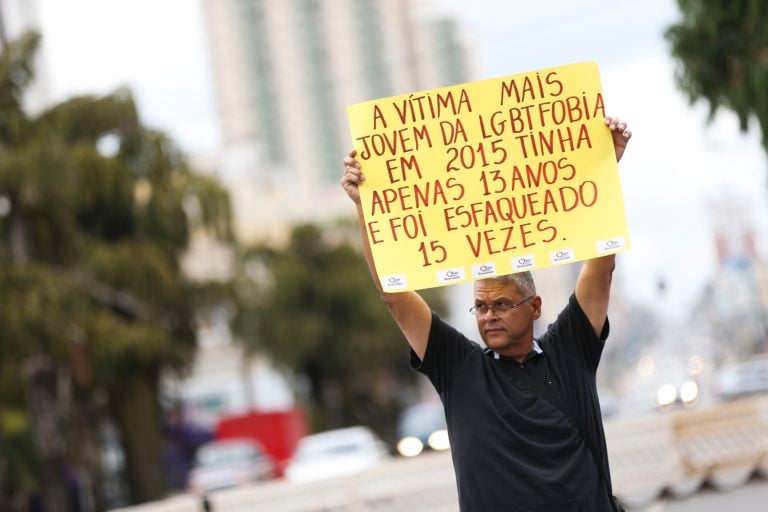 A VÍTIMA MAIS
JOVEM DA LGBTFOBIA
EM 2015 TINHA
APENAS 13 ANOS
E FOI ESFAQUEADO
15 VEZES.